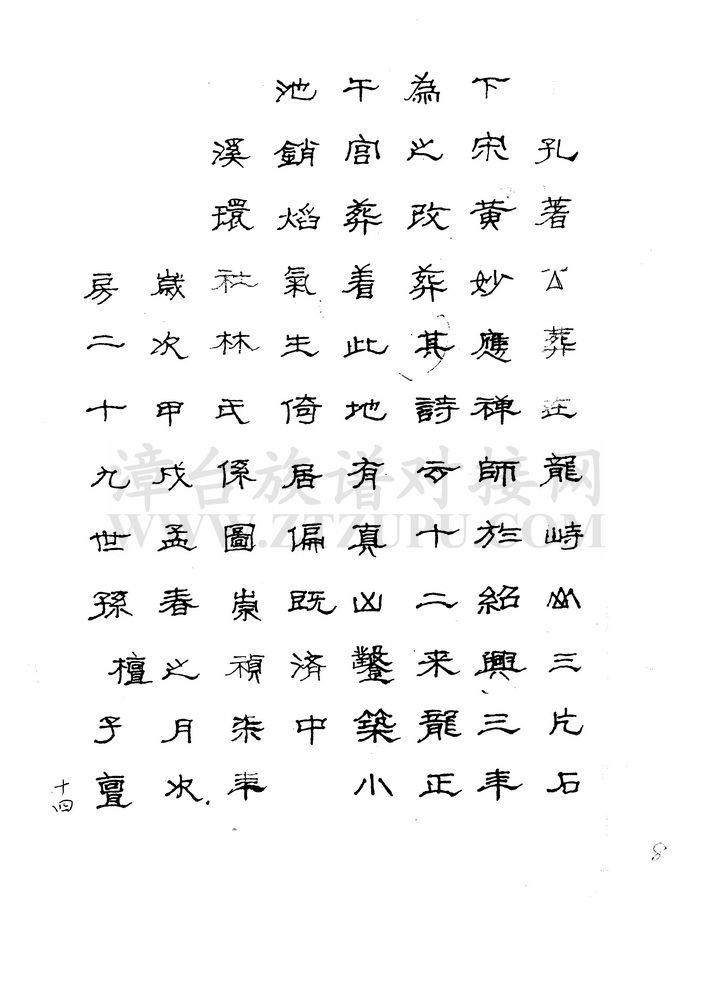 孔著公葬在龍峙山三片石
下宋黄妙應禅師於紹興三年
為之改葬其詩云十二来龍正
午宫葬着此地有真凶鑿築小
池銷熖氣生倚居偏既济中
溪環社林氏係圖崇禎柒年
歲次甲戌孟春之月次
房二十九世孫檀子亶
十四
8
漳台族谱对接网
WWW.ZTZUPU.COM